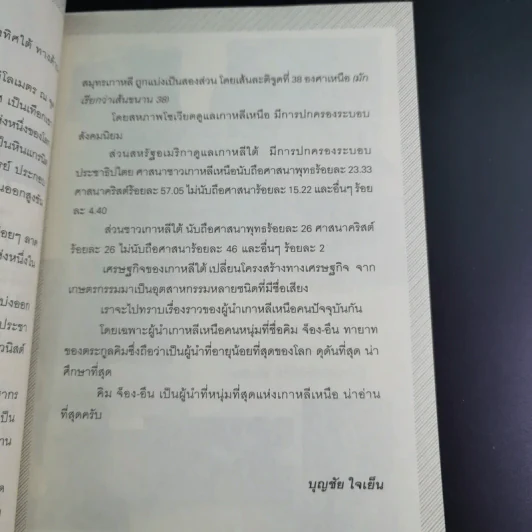 ทิศใต้ ทางด้าน
โลเมตร ณ
เป็นเทือก
งหนึ่งของโลก
เป็นหินแกรนิต
ประกอบ
นออกสูงชัน
อยๆ ลาด
งหนึ่งใน
แบ่งออก
ประชา
วนิสต์
ากร
เป็น
าน
สมุทรเกาหลี ถูกแบ่งเป็นสองส่วน โดยเส้นละติจูดที่ 38 องศาเหนือ (มัก
เรียกว่าเส้นขนาน 38)
โดยสหภาพโซเวียตดูแลเกาหลีเหนือ มีการปกครองระบอบ
สังคมนิยม
ส่วนสหรัฐอเมริกาดูแลเกาหลีใต้ มีการปกครองระบอบ
ประชาธิปไตย ศาสนาชาวเกาหลีเหนือนับถือศาสนาพุทธร้อยละ 23.33
ศาสนาคริสต์ร้อยละ 57.05 ไม่นับถือศาสนาร้อยละ 15.22 และอื่นๆ ร้อย
ละ 4.40
ส่วนชาวเกาหลีใต้ นับถือศาสนาพุทธร้อยละ 26 ศาสนาคริสต์
ร้อยละ 26 ไม่นับถือศาสนาร้อยละ 46 และอื่นๆ ร้อยละ 2
เศรษฐกิจของเกาหลีใต้ เปลี่ยนโครงสร้างทางเศรษฐกิจ จาก
เกษตรกรรมมาเป็นอุตสาหกรรมหลายชนิดที่มีชื่อเสียง
เราจะไปทราบเรื่องราวผู้นำเกาหลีเหนือคนปัจจุบันกัน
โดยเฉพาะผู้นำเกาหลีเหนือคนหนุ่มที่ชื่อคิม จ็อง-อึน ทายาท
ของตระกูลคิมซึ่งถือว่าเป็นผู้นำที่อายุน้อยที่สุดของโลก ดุดันที่สุด น่า
ศึกษาที่สุด
คิม จ็อง-อึน เป็นผู้นำที่หนุ่มที่สุดแห่งเกาหลีเหนือ น่าอ่าน
ที่สุดครับ
บุญชัย ใจเย็น